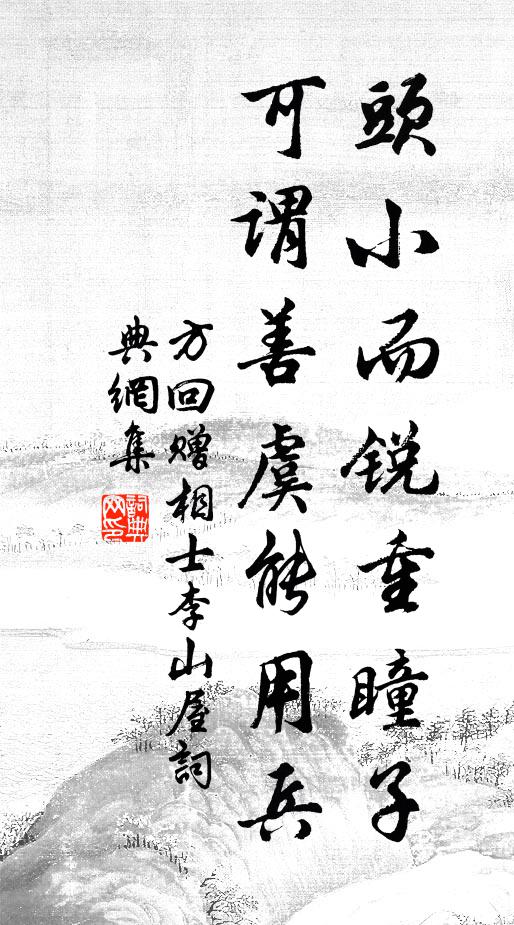 頭小而銳重瞳子
可謂善虞能用兵
方回贈相士李山屋詞
典網集
詞典網印